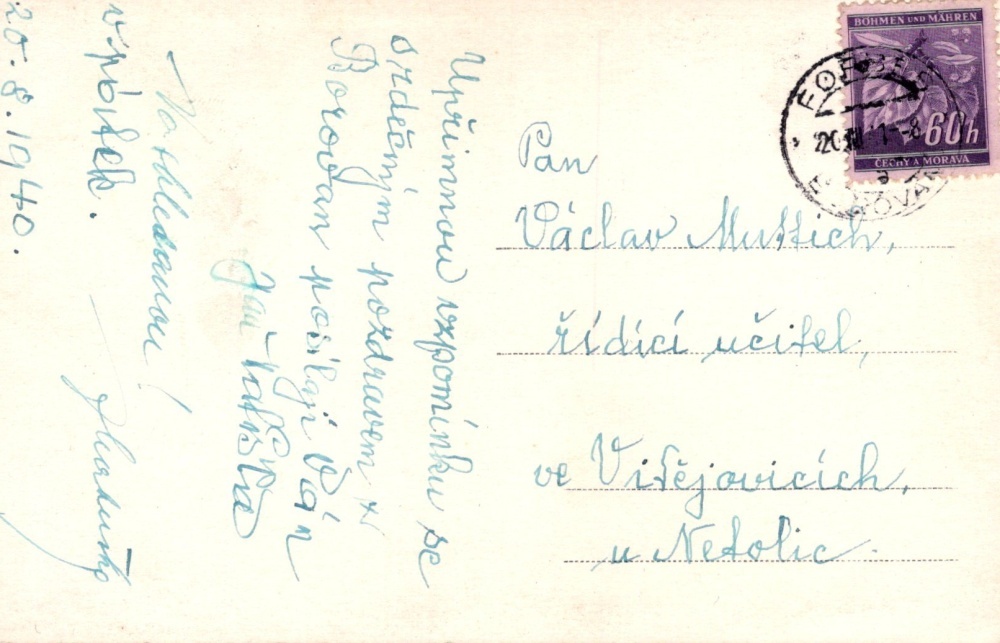 Upřímnou vzpomínku se
srdečným pozdravem z
Borovan posílají Vám
Jan
Na shledanou!
v pátek.
20.8.1940.
BÖHMEN UND MÄHREN
60h
ČECHY A MORAVA
Pan
Václav Muttich,
řídící učitel,
ve Vitějovicích,
u Netolic.